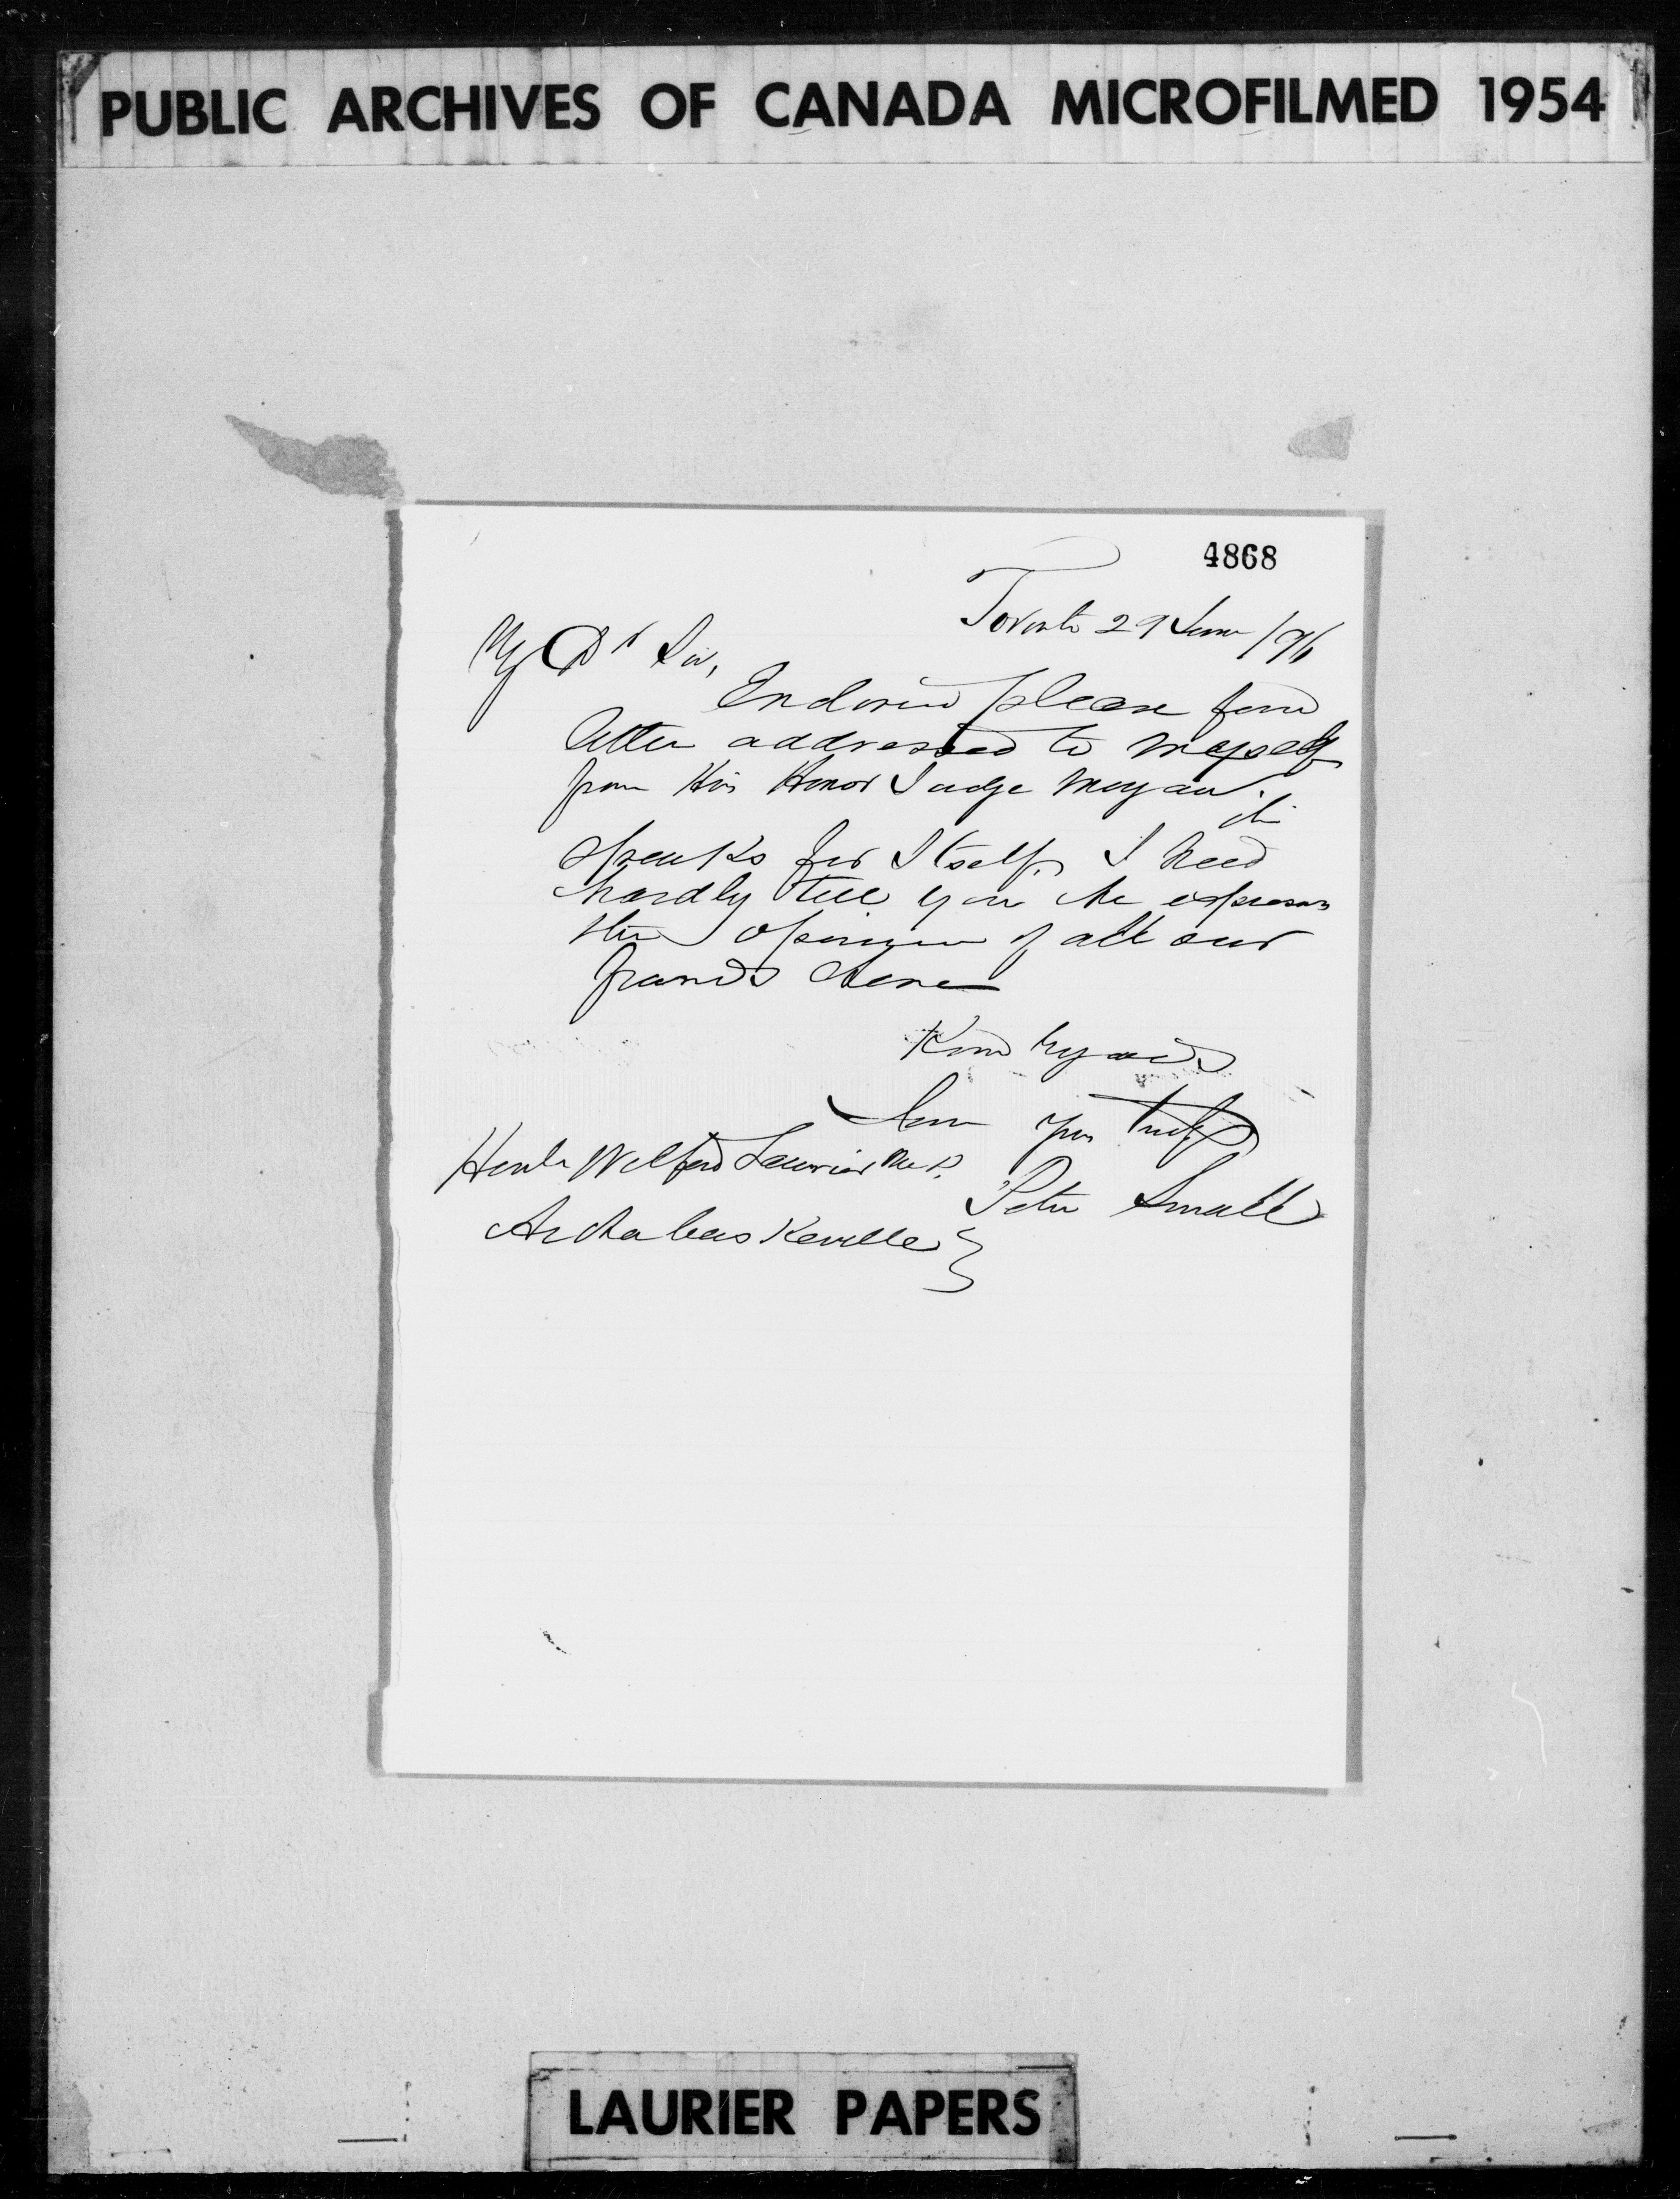 PUBLIC ARCHIVES OF CANADA MICROFILMED 1954
4868
Toronto 29 June /96
My Dr Sir,
Enclosed please find
letter addressed to myself
from His Honor Judge Morgan. it
speaks for Itself. I need
hardly tell you he expresses
the opinion of all our
friends here
Kind regards
I am yours truly
Peter Small
Honble Wilfred Laurier M.P.
Arthabaskaville
LAURIER PAPERS